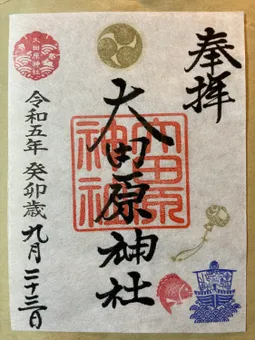 奉拝
大田原神社
大田原神社
令和五年 癸卯歳 九月二十三日
大田原神社